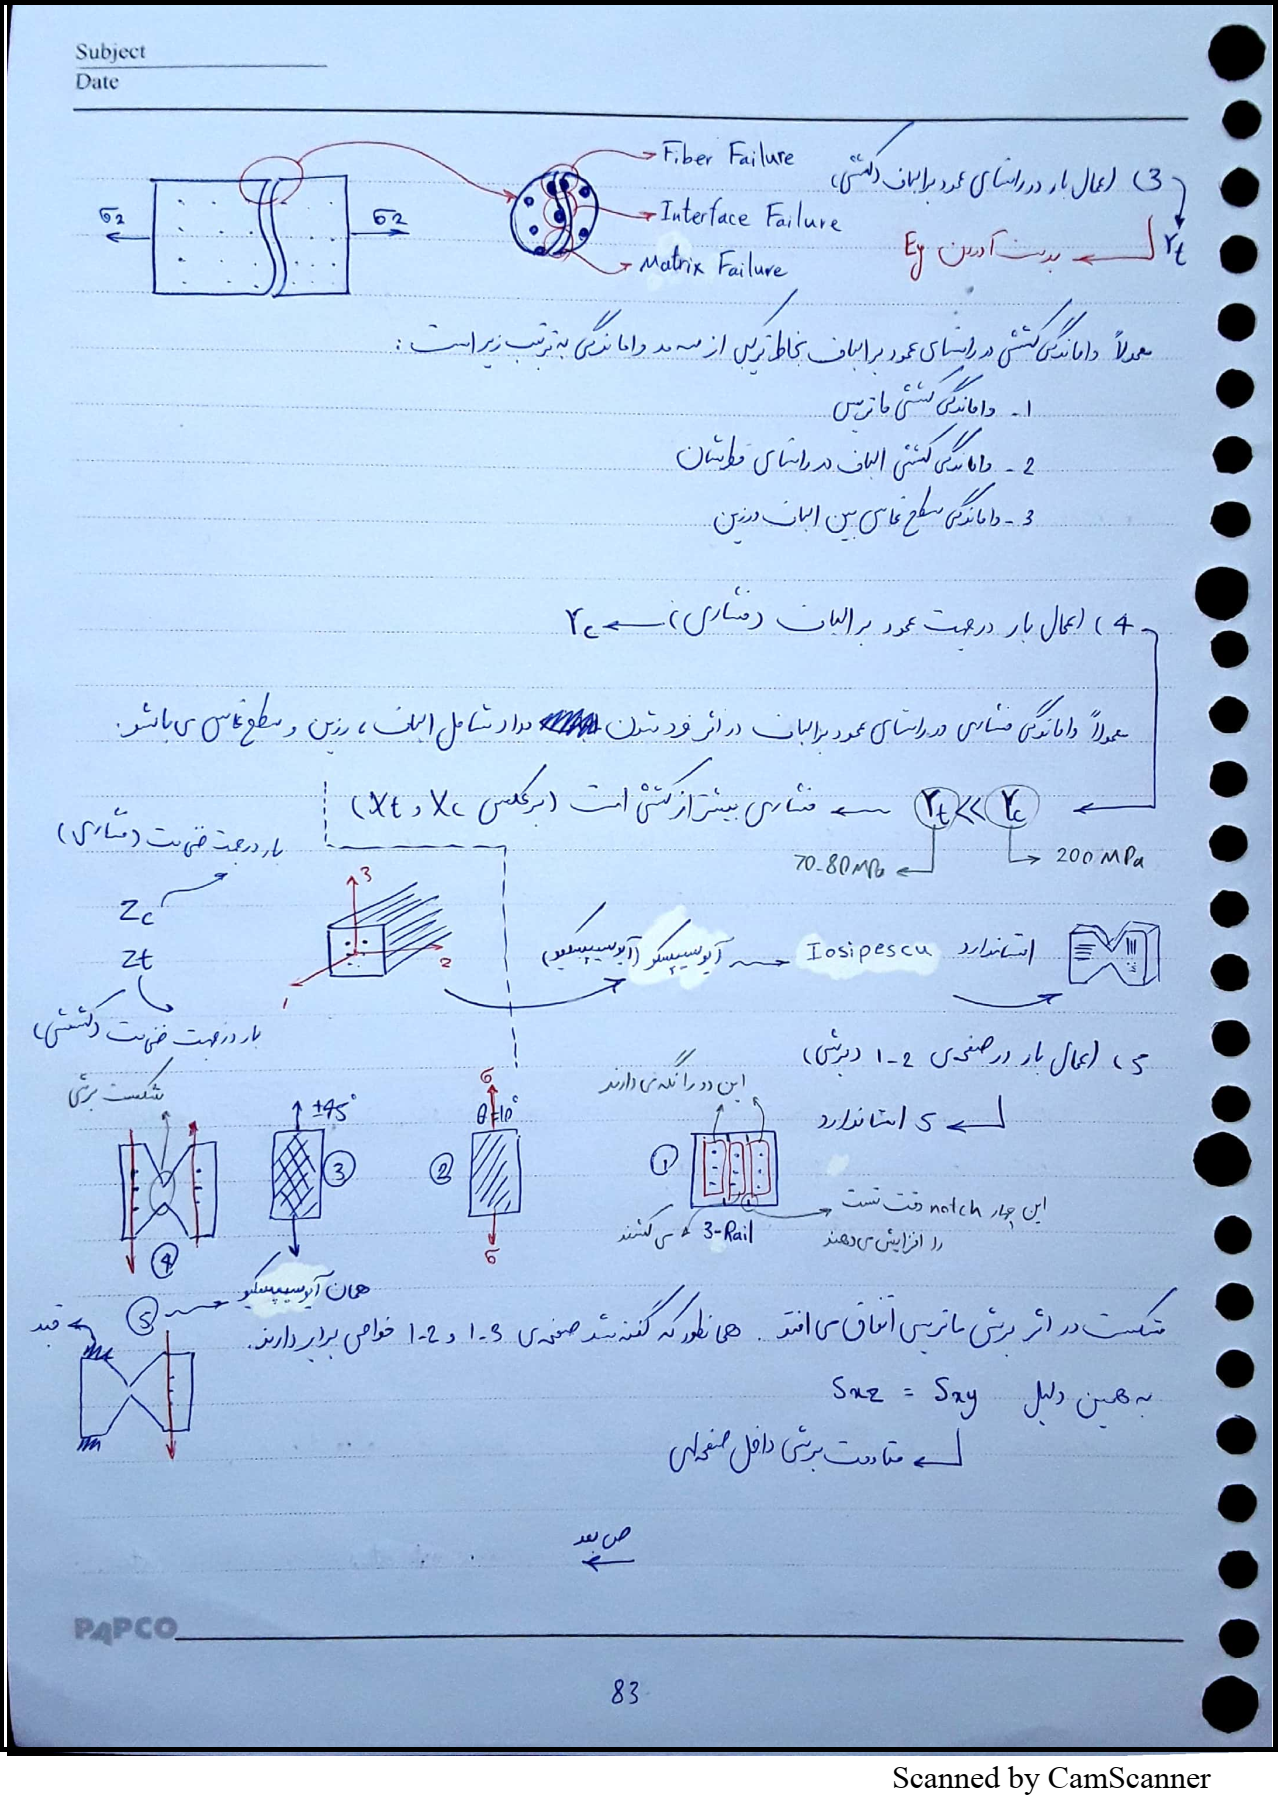 Subject
Date
3) اعمال بار در راستای عمود بر الیاف (کششی)
Yt
بدست آوردن Ey
Fiber Failure
Interface Failure
Matrix Failure
σ2
σ2
معمولاً واماندگی کششی در راستای عمود بر الیاف بخاطر ترکیبی از سه مد واماندگی به ترتیب زیر است :
1- واماندگی کششی ماتریس
2- واماندگی کششی الیاف در راستای قطرشان
3- واماندگی سطح تماس بین الیاف و رزین
4) اعمال بار در جهت عمود بر الیاف (فشاری) ← Yc
معمولاً واماندگی فشاری در راستای عمود بر الیاف در اثر خرد شدن مواد شامل الیاف، رزین و سطح تماس می باشد.
Yt << Yc ← فشاری بیشتر از کششی است (برعکس Xc و Xt)
70-80 MPa
200 MPa
بار در جهت ضخامت (فشاری)
Zc
Zt
بار در جهت ضخامت (کششی)
3
2
1
استاندارد Iosipescu
آیوسیپسکو (آیوسیپسکیو)
5) اعمال بار در صفحه‌ی 2-1 (برشی)
5 استاندارد
این دو را نگه می دارند
1
3-Rail
می کشند
این چهار notch دقت تست
را افزایش می دهند
2
σ
θ=10°
σ
3
±45°
4
شکست برشی
5
همان آیوسیپسکیو
قید
شکست در اثر برش ماتریس اتفاق می افتد. همانطور که گفته شد صفحه‌ی 3-1 و 2-1 خواص برابر دارند.
به همین دلیل Sxz = Sxy
مقاومت برشی داخل صفحه‌ای
ص بعد
PAPCO
83
Scanned by CamScanner